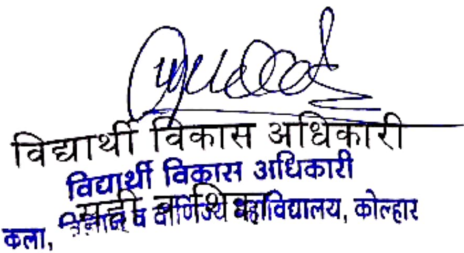 विद्यार्थी विकास अधिकारी
विद्यार्थी विकास अधिकारी
कला, व वाणिज्य महाविद्यालय, कोल्हार